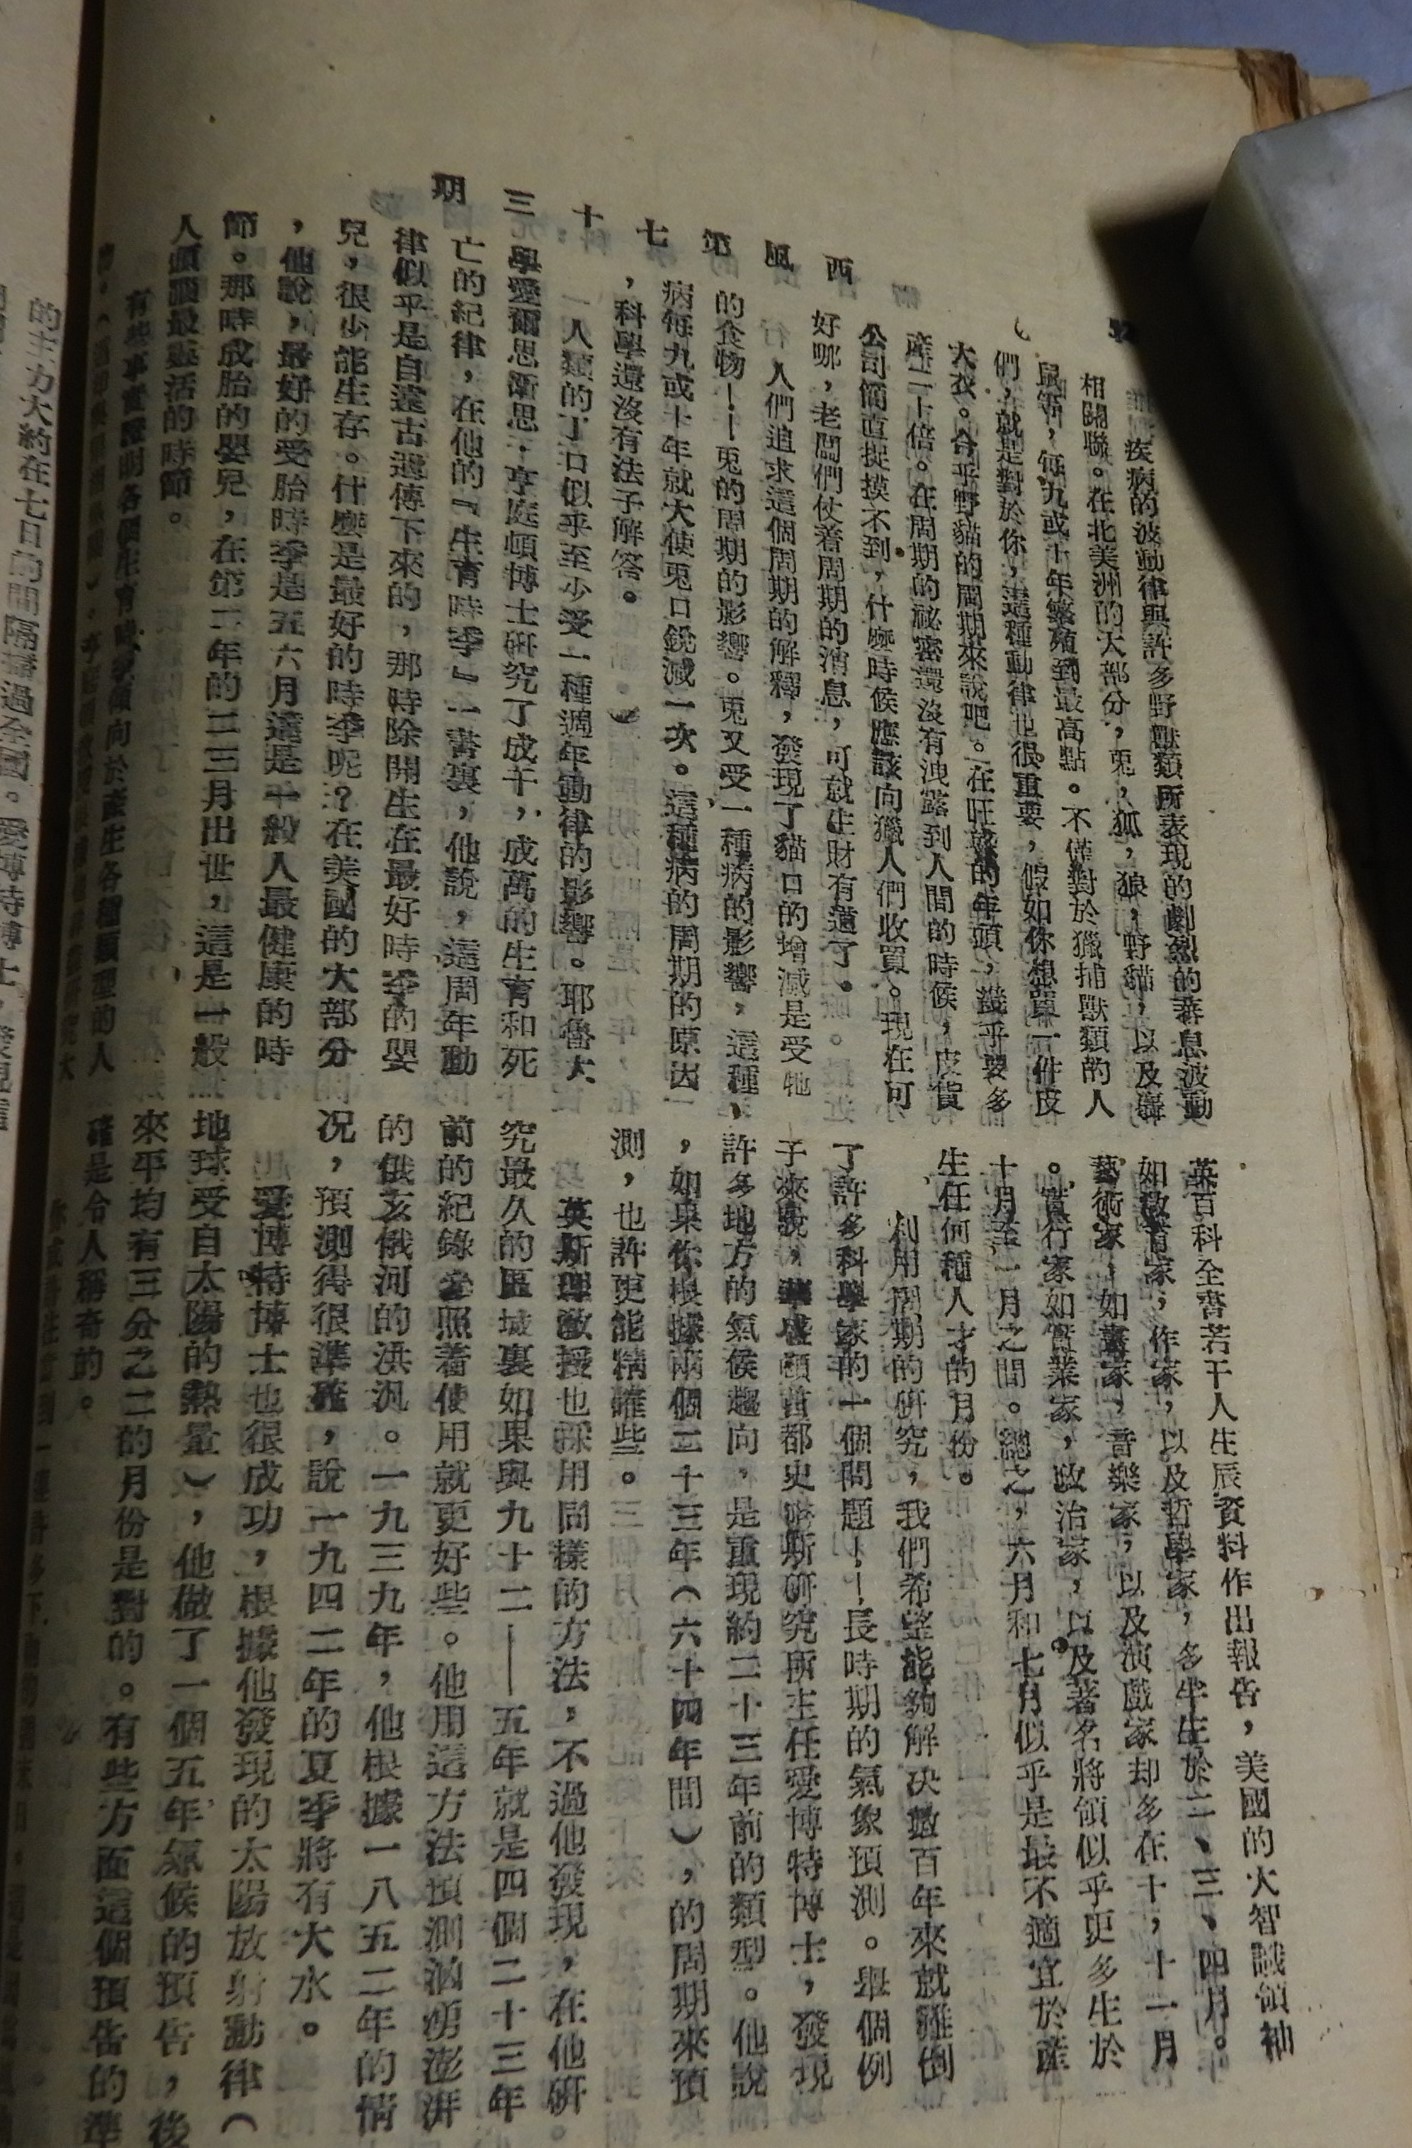 西風第七十三期
疾病的波動律與許多野獸類所表現的劇烈的蕃息波動
相關聯。在北美洲的大部分，兎，狐，狼，野貓，以及
鼠等，每九或十年繁殖到最高點。不僅對於獵捕獸類的人
們，就是對於你，這種動律也很重要，假如你想買一件皮
大衣。合乎野貓的周期來說吧。在旺盛的年頭，幾乎要多
產二十倍。在周期的祕密還沒有洩露到人間的時候，皮貨
公司簡直捉摸不到，什麼時候應該向獵人們收買。現在可
好哪，老闆們仗着周期的消息，可就生財有道了。
人們追求這個周期的解釋，發現了貓口的增減是受牠
的食物——兎的周期的影響。兎又受一種病的影響，這種
病每九或十年就大使兎口銳減一次。這種病的周期的原因
，科學還沒有法子解答。
人類的丁口似乎至少受一種週年動律的影響。耶魯大
學愛爾思衞思·亨庭頓博士研究了成千，成萬的生育和死
亡的紀律，在他的『生育時季』一書裏，他說，這周年動
律似乎是自遠古遺傳下來的，那時除開生在最好時季的嬰
兒，很少能生存。什麼是最好的時季呢？在美國的大部分
，他說，最好的受胎時季是五六月這是一般人最健康的時
節。那時成胎的嬰兒，在第二年的二三月出世，這是一般
人頭腦最靈活的時節。
有些事實證明各個生育時季傾向於產生各種類型的人
英百科全書若干人生辰資料作出報告，美國的大智識領袖
如教育家，作家，以及哲學家，多半生於二、三、四月。
藝術家，如畫家，音樂家，以及演戲家却多在十，十一月
。實行家如實業家，政治家，以及著名將領似乎更多生於
十月至一月之間。總之，六月和七月似乎是最不適宜於產
生任何種人才的月份。
利用周期的研究，我們希望能夠解決數百年來就難倒
了許多科學家的一個問題——長時期的氣象預測。舉個例
子來說，華盛頓首都史密斯研究所主任愛博特博士，發現
許多地方的氣候趨向，是重現約二十三年前的類型。他說
，如果你根據兩個二十三年（六十四年間），的周期來預
測，也許更能精確些。
英斯理教授也採用同樣的方法，不過他發現，在他研
究最久的區域裏如果與九十二——五年就是四個二十三年
前的紀錄參照着使用就更好些。他用這方法預測汹湧澎湃
的俄亥俄河的洪汎。一九三九年，他根據一八五二年的情
况，預測得很準確，說一九四二年的夏季將有大水。
愛博特博士也很成功，根據他發現的太陽放射動律（
地球受自太陽的熱量），他做了一個五年氣候的預告，後
來平均有三分之二的月份是對的。有些方面這個預告的準
確是令人稱奇的。
的主力大約在七日的間隔